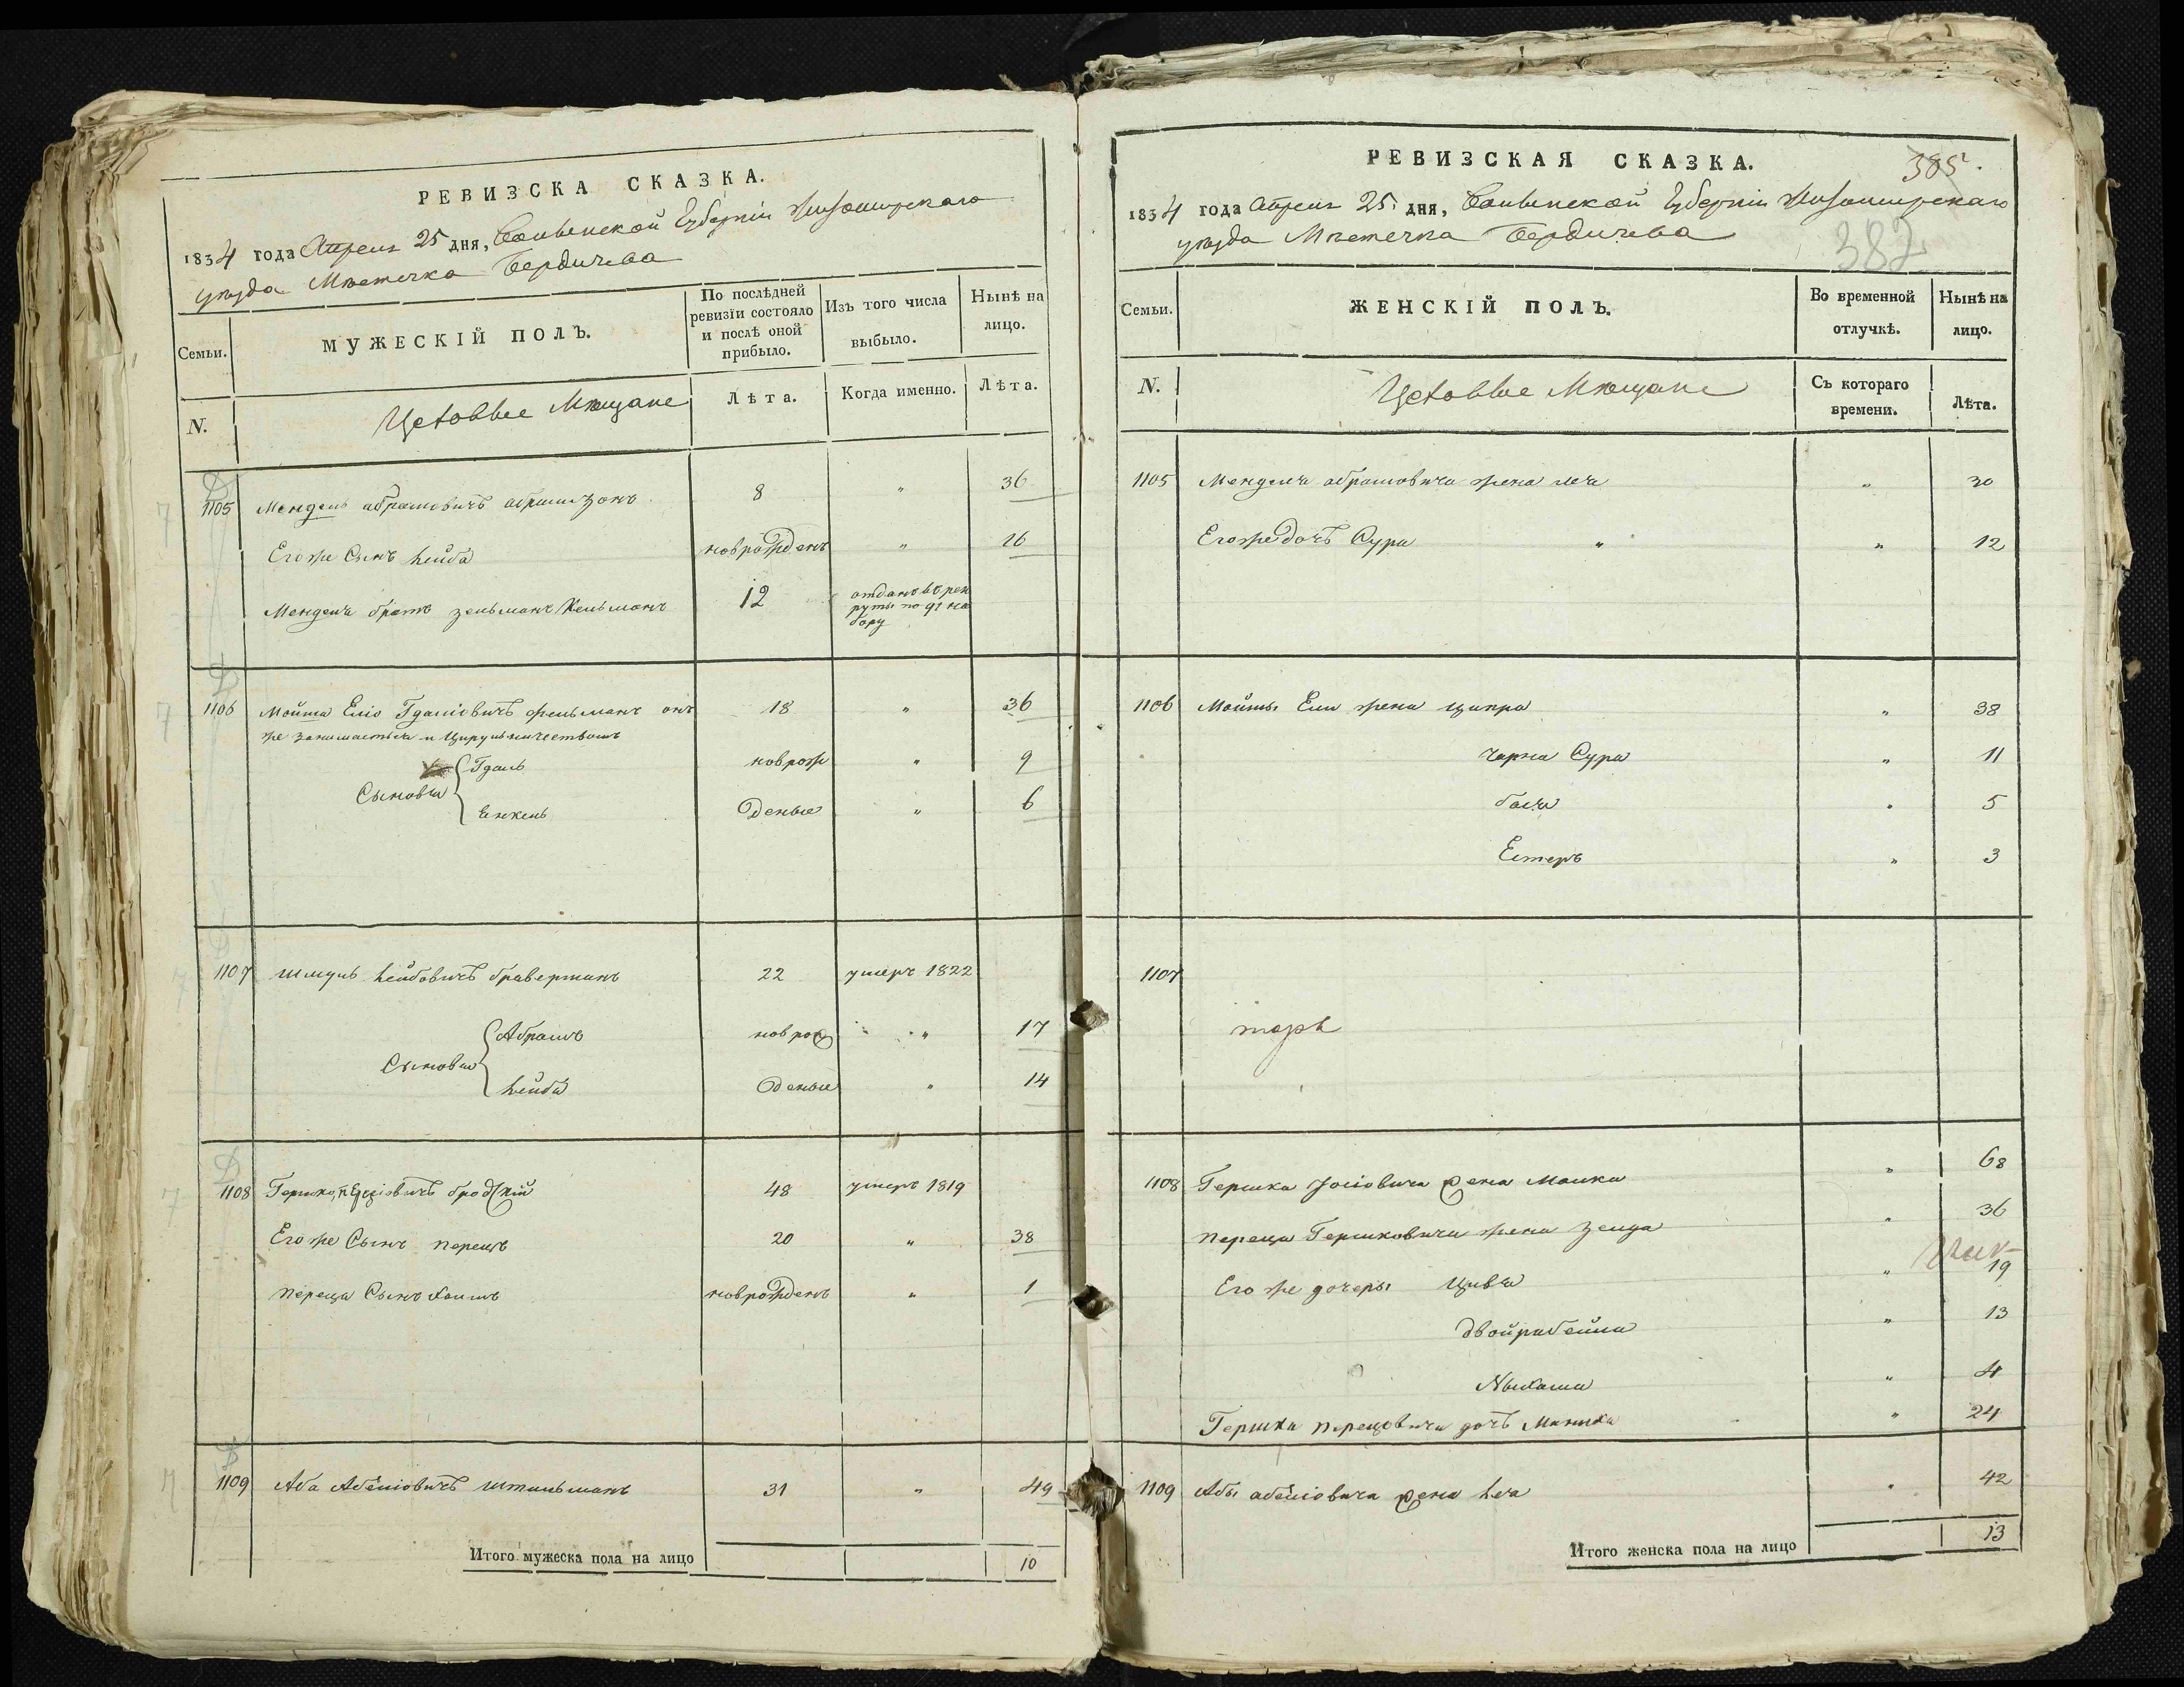 РЕВИЗСКА СКАЗКА.
1834 года Апреля 25 дня, Волынской Губерніи Житомирскаго
уѣзда Мѣстечка Бердичева
Семьи.
МУЖЕСКІЙ ПОЛЪ.
По послѣдней ревизіи состояло и послѣ оной прибыло.
Изъ того числа выбыло.
Нынѣ на лицо.
N.
Цеховые Мѣщане
Лѣта.
Когда именно.
Лѣта.
1105 Мендель абрамовичъ 8 " 36
Егоже Сынъ Лейба новрожденъ " 16
Менделя братъ зельманъ Кельманъ 12 отданъ въ рек
руты по 91 на
бору
1106 Мойша Еліо Гдаліовичъ фельманъ онъ 18 " 36
же занимается и Цирульничествомъ
Сыновья
Гдаль новрож " 9
Янкель деные " 6
1107 шмуль Лейбовичъ браверманъ 22 умеръ 1822
Сыновья
Абрамъ новрож " 17
Лейба деные " 14
1108 Гершко бродскій 48 умеръ 1819
Егоже Сынъ перецъ 20 " 38
переца Сынъ Хаимъ новрожденъ " 1
1109 Аба Абеліовичъ штильманъ 31 " 49
Итого мужеска пола на лицо 10
РЕВИЗСКАЯ СКАЗКА.
385.
1834 года Апреля 25 дня, Волынской Губерніи Житомирскаго
уѣзда Мѣстечка Бердичева
382
Семьи.
ЖЕНСКІЙ ПОЛЪ.
Во временной отлучкѣ.
Нынѣ на лицо.
N.
Цеховые Мѣщане
Съ котораго времени.
Лѣта.
1105 Менделя абрамовича жена леа " 30
Егоже дочь Сура " " 12
1106 Мойши Ели жена ципра " 38
черна Сура " 11
бася " 5
Естеръ " 3
1107
1108 Гершка Іосіовича жена Малка " 68
переца Гершковича жена зелда " 36
Его же дочеры Цивья " 19
двойрабейла " 13
" 4
Гершка перецовича дочь " 24
1109 Абы абеліовича жена Леа " 42
Итого женска пола на лицо 13